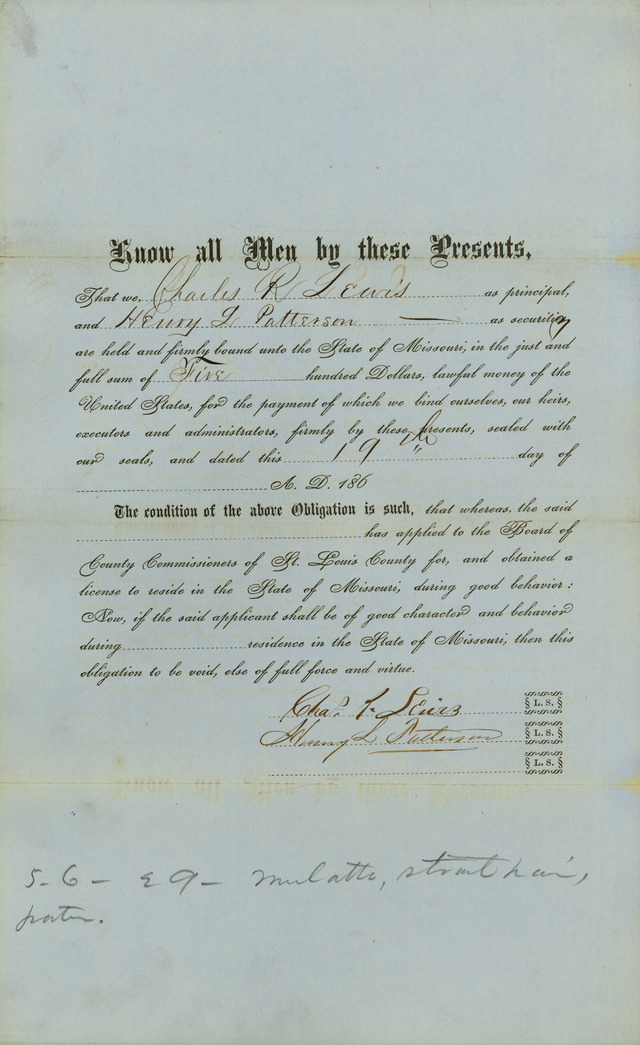 Know all Men by these Presents,
That we, Charles R Lewis as principal,
and Henry L Patterson — as securities
are held and firmly bound unto the State of Missouri, in the just and
full sum of Five hundred Dollars, lawful money of the
United States, for the payment of which we bind ourselves, our heirs,
executors and administrators, firmly by these presents, sealed with
our seals, and dated this 19th day of
A. D. 186
The condition of the above Obligation is such, that whereas, the said
has applied to the Board of
County Commissioners of St. Louis County for, and obtained a
license to reside in the State of Missouri, during good behavior:
Now, if the said applicant shall be of good character and behavior
during residence in the State of Missouri, then this
obligation to be void, else of full force and virtue.
Chas. Lewis § L. S. §
Henry L Patterson § L. S. §
§ L. S. §
5-6- 29- mulatto, strait hair,
porter.